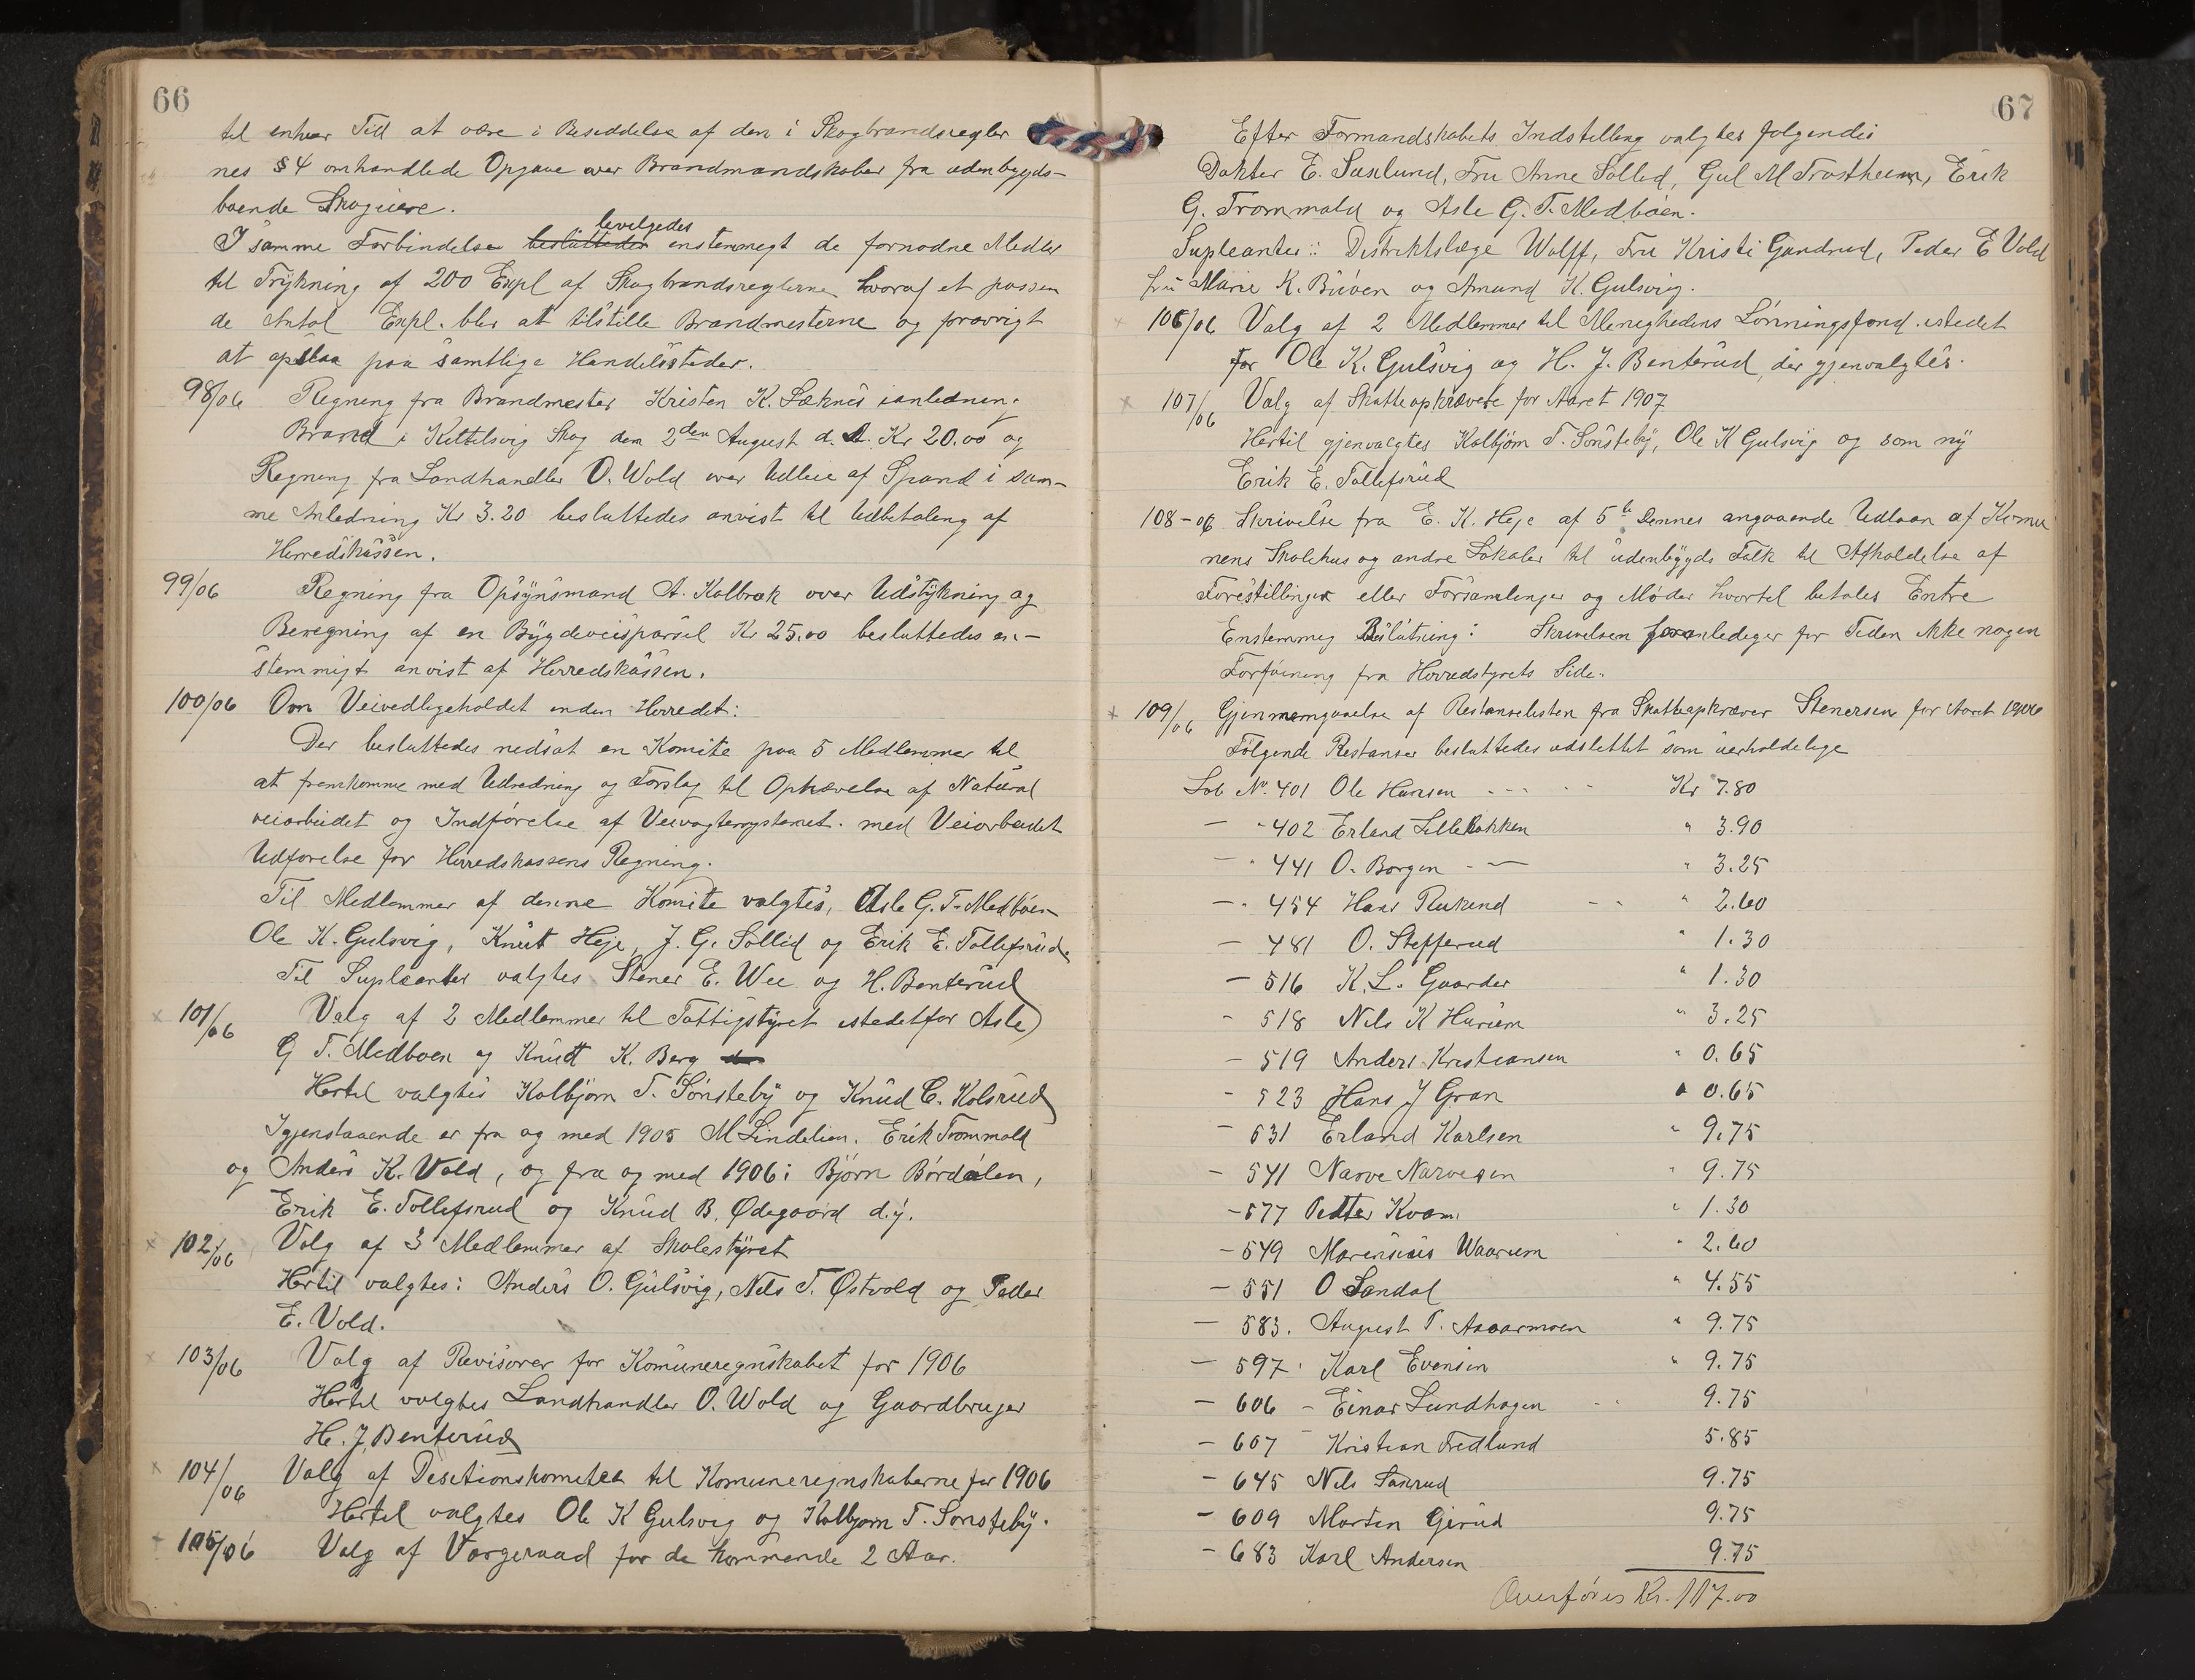 66
til enhver Tid at være i Besiddelse af den i Skogbrandsregler
nes §4 omhandlede Opgave over Brandmandskaber fra udenbygds-
boende Skogeiere.
bevilgedes
I samme Forbindelse besluttedes enstemmigt de fornødne Midler
til Trykning af 200 Expl af Skogbrandsreglerne hvoraf et passen
de Antal Expl. blir at tilstille Brandmesterne og forøvrigt
at opslaa paa samtlige Handelssteder.
98/06 Regning fra Brandmester Kristen K. Søknes ianledning
Brand i Kittilsvig Skog den 2den August d. A. Kr 20.00 og
Regning fra Landhandler O. Wold over Udleie af Spand i sam-
me Anledning Kr 3.20 besluttedes anvist til Udbetaling af
Herredskassen.
99/06 Regning fra Opsynsmand A. Kolbræk over Udstykning og
Beregning af en Bygdeveisparsel Kr 25.00 besluttedes en-
stemmigt anvist af Herredskassen.
100/06 Om Veivedligeholdet inden Herredet:
Der besluttedes nedsat en Komite paa 5 Medlemmer til
at fremkomme med Udredning og Forslag til Ophævelse af Natural
veiarbeidet og Indførelse af Veivogtersystemet. med Veiarbeidet
Udførelse for Herredskassens Regning.
Til Medlemmer af denne Komite valgtes, Asle G. T. Medbøen
Ole K. Gulsvig, Knut Heje, J. G. Sollid og Erik E. Tollefsrud.
Til Supleanter valgtes Stener E. Wee og H. Benterud
101/06 Valg af 2 Medlemmer til Fattigstyret istedetfor Asle
G T. Medboen og Knutt K. Berg
Hertil valgtes Kolbjørn T. Sønsteby og Knud C. Kolsrud
Igjenstaaende er fra og med 1905 M Lindelien. Erik Trommald
og Anders K. Vold, og fra og med 1906: Bjørn Børdalen,
Erik E. Tollefsrud og Knud B. Ødegaard d.y.
102/06 Valg af 3 Medlemmer af Skolestyret
Hertil valgtes: Anders O. Gulsvig, Nils T. Østvold og Peder
E. Vold.
103/06 Valg af Revisorer for Komuneregnskabet for 1906
Hertil valgtes Landhandler O. Wold og Gaardbruger
H. J. Benterud
104/06 Valg af Desitionskomiteen til Komuneregnskaberne for 1906
Hertil valgtes Ole K Gulsvig og Kolbjørn T. Sønsteby.
105/06 Valg af Vørgeraad for de kommende 2 Aar.
67
Efter Formandskabets Indstilling valgtes følgende:
Doktor E. Saxlund, Fru Anne Sollid, Gul M Trostheim, Erik
G. Trommald og Asle G. T. Medbøen.
Supleanter: Distriktslæge Wolff, Fru Kristi Gandrud, Peder E Vold
fru Marie K. Buven og Amund K. Gulsvig.
106/06 Valg af 2 Medlemmer til Menighedens Lønningsfond istedet
for Ole K. Gulsvig og H. J. Benterud, der gjenvalgtes.
107/06 Valg af Skatteopkrævere for Aaret 1907
Hertil gjenvalgtes Kolbjørn T. Sønsteby, Ole K Gulsvig og som ny
Erik E. Tollefsrud
108-06 Skrivelse fra E. K. Heje af 5te Dennes angaaende Udlaan af Komu
nens Skolehus og andre Lokaler til udenbygds Folk til Afholdelse af
Forestillinger eller Forsamlinger og Møder hvortil betales Entre
Enstemmig Beslutning: Skrivelsen foranlediger for Tiden ikke nogen
Forføining fra Herredstyrets Side.
109/06 Gjennemgaaelse af Restanselisten fra Skatteopkræver Stenersen for Aaret 1906
Følgende Restanser besluttedes udslettet som uerholdelige
Løb No. 401 Ole Hansen Kr 7.80
— " 402 Erland Lillebakken " 3.90
— " 441 O. Borgen " 3.25
— " 454 Hans Rukend " 2.60
— 481 O. Stefferud " 1.30
— 516 K. L. Gaarder " 1.30
- 518 Nils K Hurum " 3.25
— 519 Anders Kristiansen " 0.65
- 523 Hans J Gran " 0.65
- 531 Erland Karlsen " 9.75
- 541 Narve Narvesen " 9.75
- 577 Petter Kvam " 1.30
- 549 Marensius Waarum " 2.60
— 551 O Sandal " 4.55
— 583. August T. Aavarmoen " 9.75
— 597 Karl Evensen " 9.75
— 606 - Einar Lundhagen 9.75
— 607 Kristian Fredlund 5.85
- 645 Nils Saxrud 9.75
- 609 Morten Gjerud 9.75
- 683 Karl Andersen 9.75
Overføres Kr. 117.00